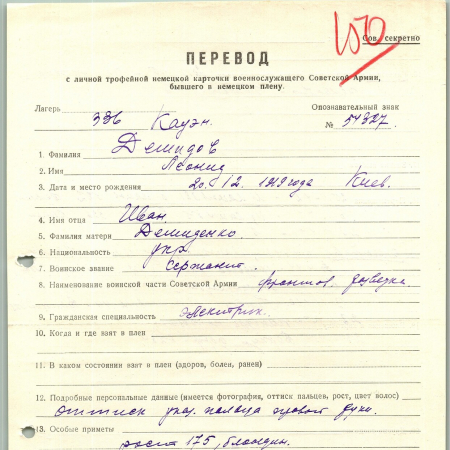 Сов. секретно
ПЕРЕВОД
с личной трофейной немецкой карточки военнослужащего Советской Армии,
бывшего в немецком плену.
Лагерь 336 Кауэн. Опознавательный знак
№ 54327.
1. Фамилия Демидов
2. Имя Леонид
3. Дата и место рождения 20. 12. 1919 года Киев.
4. Имя отца Иван.
5. Фамилия матери Демиденко.
6. Национальность укр.
7. Воинское звание сержант.
8. Наименование воинской части Советской Армии фронтов. разведка.
9. Гражданская специальность электрик.
10. Когда и где взят в плен
11. В каком состоянии взят в плен (здоров, болен, ранен)
12. Подробные персональные данные (имеется фотография, оттиск пальцев, рост, цвет волос)
оттиск указ. пальца правой руки.
13. Особые приметы
рост 175, блондин.